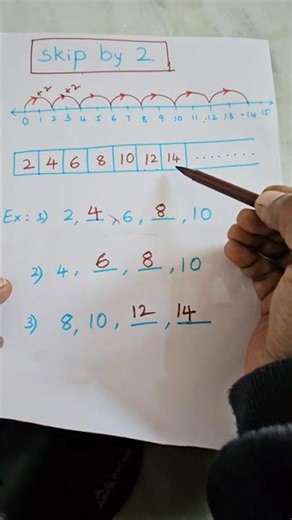 skip by 2
x2 x2
0 1 2 3 4 5 6 7 8 9 10 11 12 13 14 15
2 4 6 8 10 12 14 ........
Ex: 1) 2, 4, 6, 8, 10
2) 4, 6, 8, 10
3) 8, 10, 12, 14